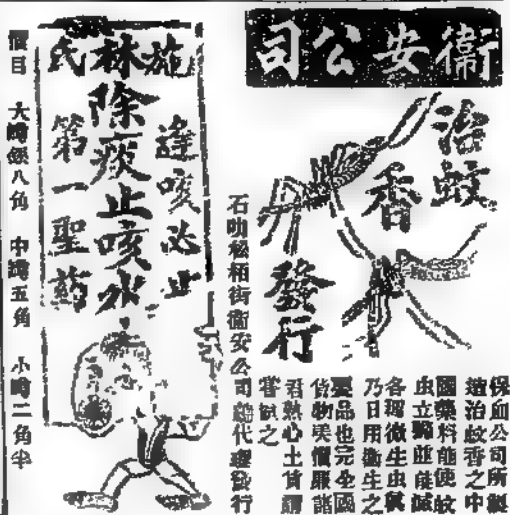 衞安公司
治蚊
香
發行
保血公司所製
造治蚊香之中
國藥料能使蚊
虫立斃並能滅
各種微生虫類
乃日用衞生之
要品也完全國
貨物美價廉諸
君熱心土貨請
嘗試之
石叻松栢街衞安公司總代理發行
施林氏
逢咳必止
除痰止咳水
第一聖葯
價目 大罇銀八角 中罇五角 小罇二角半